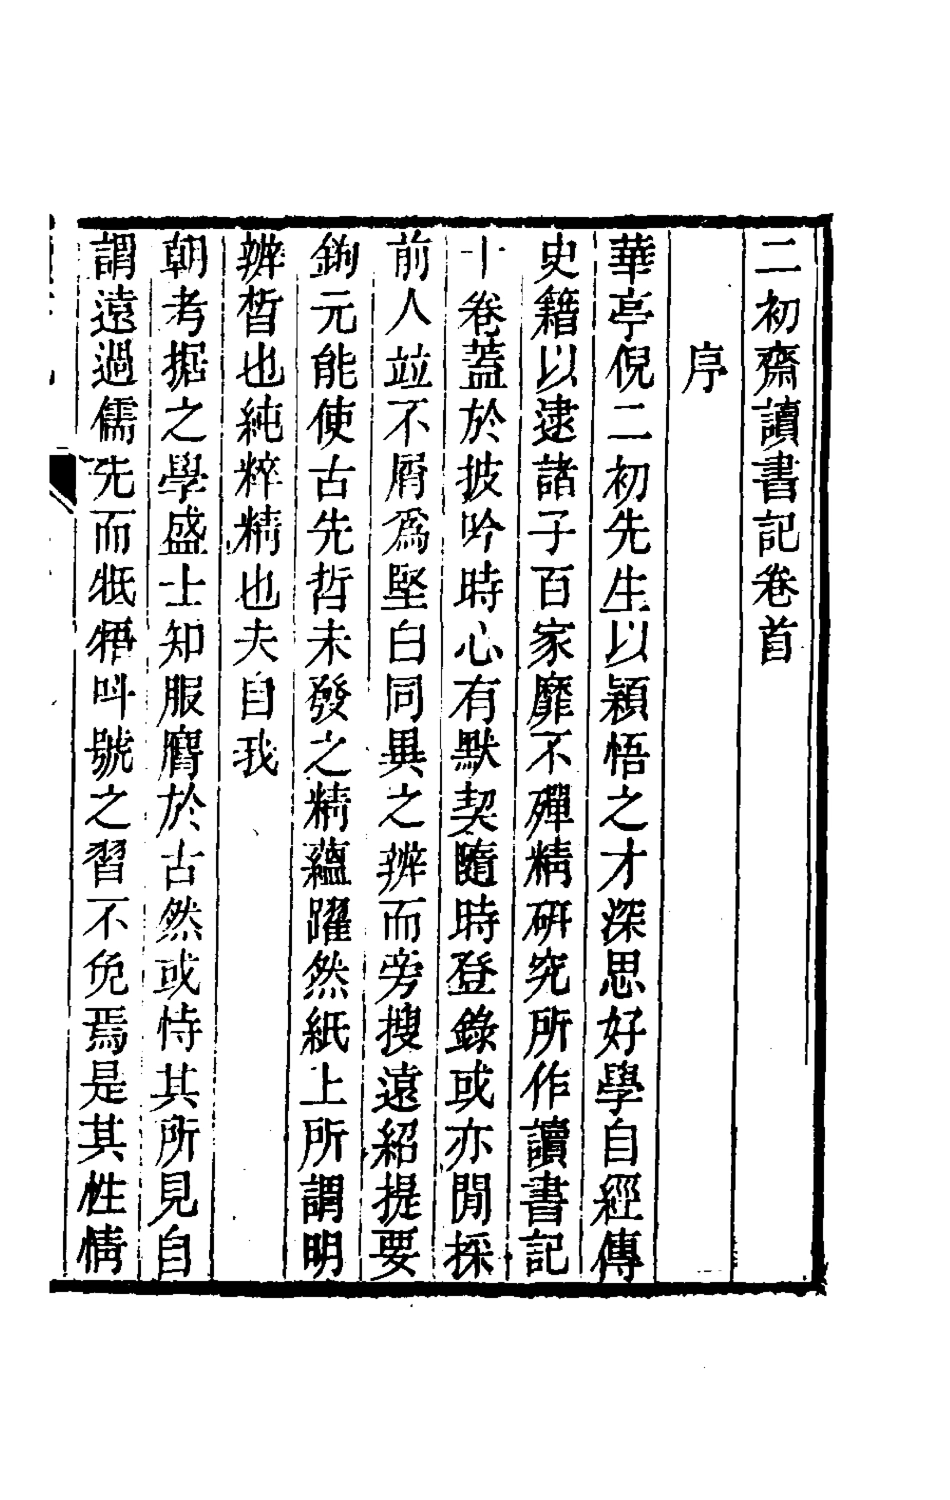 二初齋讀書記卷首
序
華亭倪二初先生以穎悟之才深思好學自經傳
史籍以逮諸子百家靡不殫精研究所作讀書記
十卷蓋於披吟時心有默契隨時登錄或亦閒採
前人竝不屑爲堅白同異之辨而旁搜遠紹提要
鉤元能使古先哲未發之精蘊躍然紙上所謂明
辨晳也純粹精也夫自我
朝考据之學盛士知服膺於古然或恃其所見自
謂遠過儒先而牴牾呌號之習不免焉是其性情